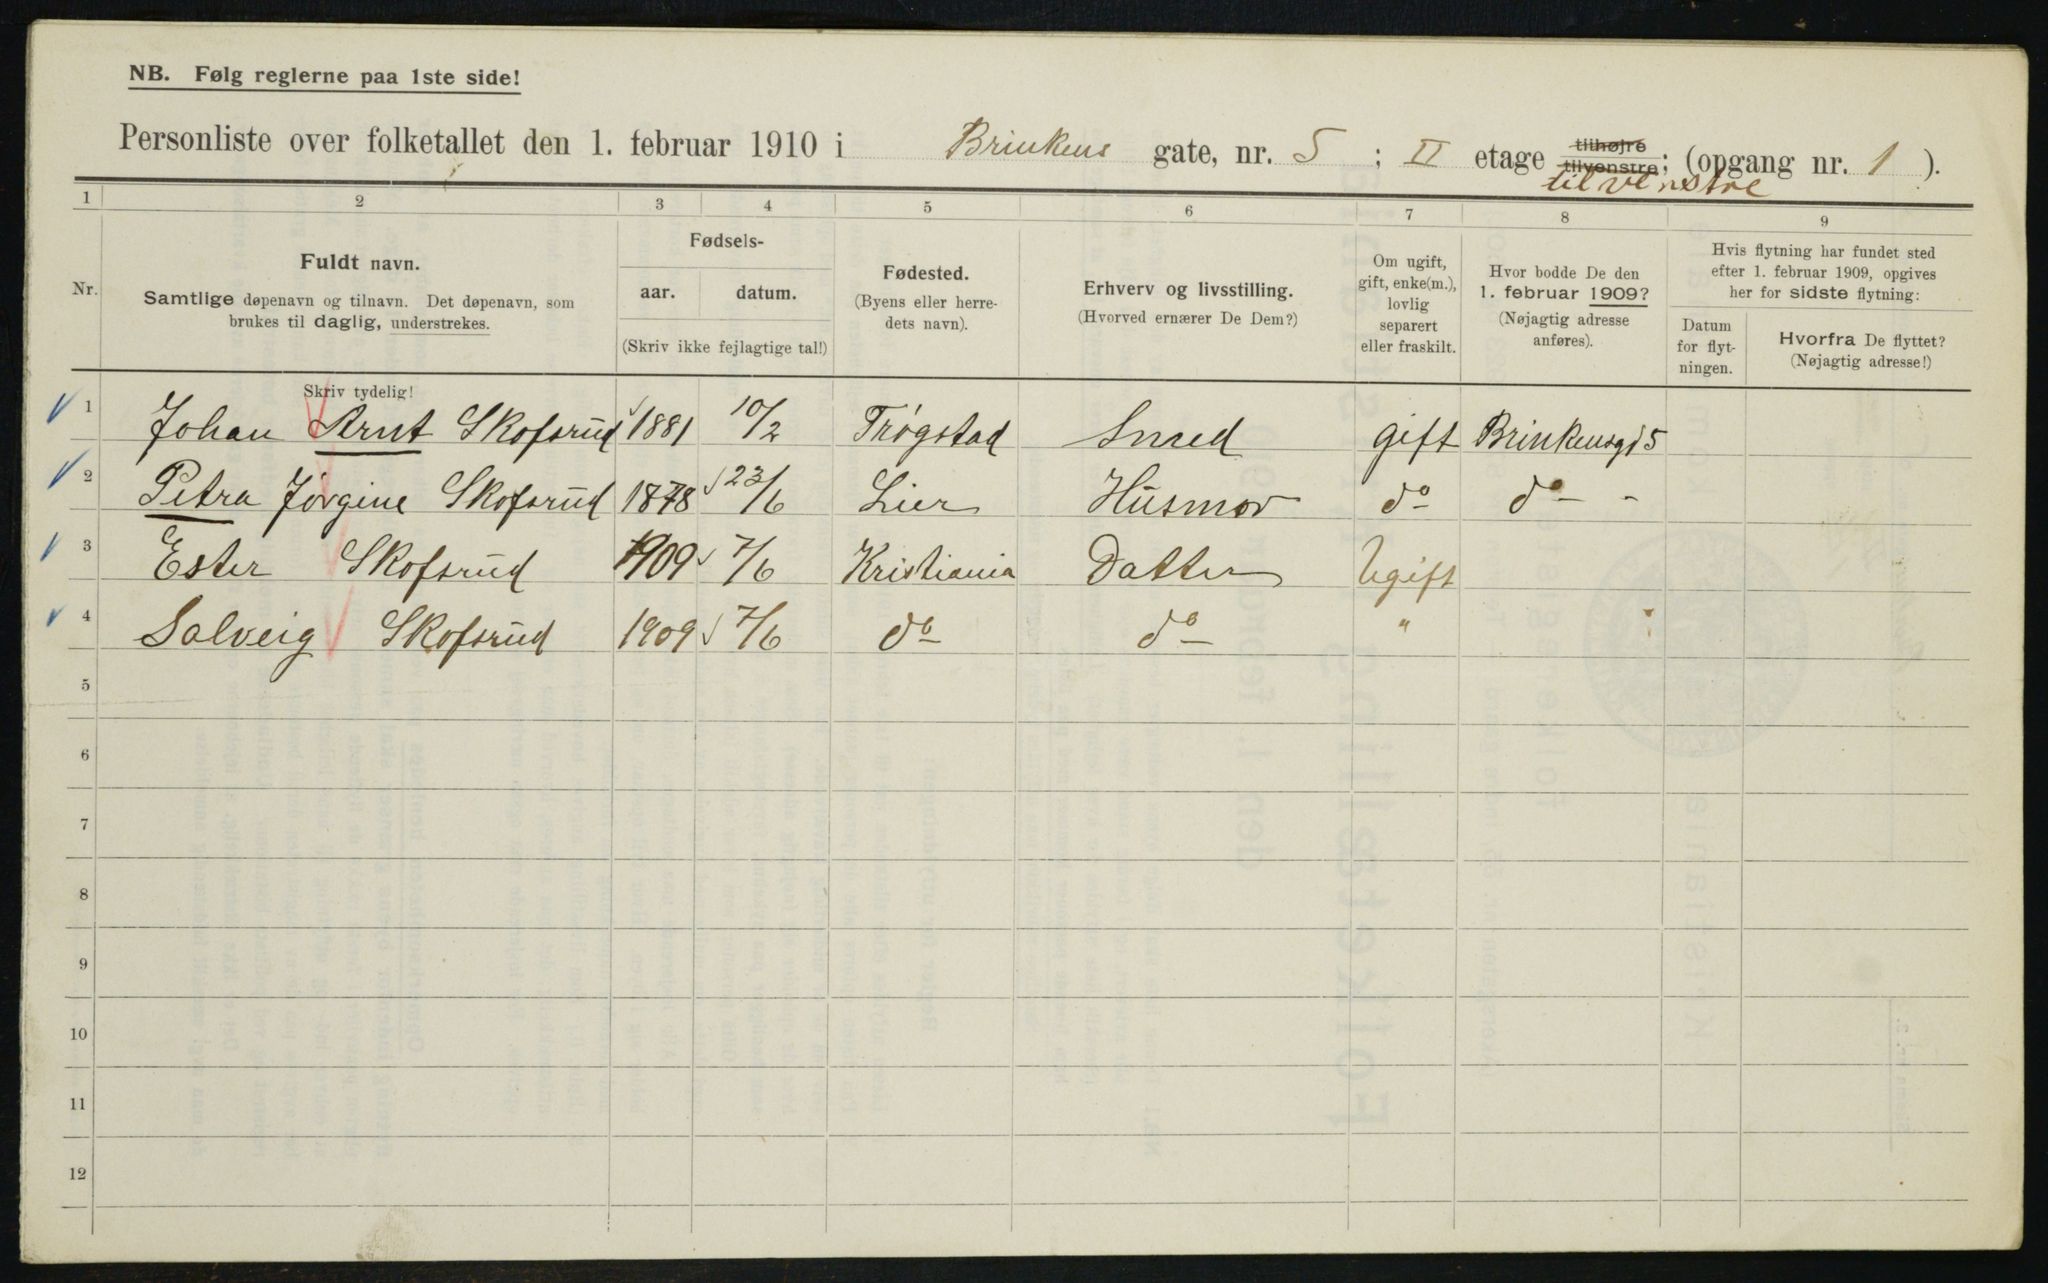 NB. Følg reglerne paa 1ste side!
Personliste over folketallet den 1. februar 1910 i Brinkens gate, nr. 5 ; II etage tilhøjre tilvenstre; (opgang nr. 1 ).
tilvenstre
1 2 3 4 5 6 7 8 9
Nr.
Fuldt navn.
Samtlige døpenavn og tilnavn. Det døpenavn, som
brukes til daglig, understrekes.
Fødsels-
aar. datum.
(Skriv ikke fejlagtige tal!)
Fødested.
(Byens eller herre-
dets navn).
Erhverv og livsstilling.
(Hvorved ernærer De Dem?)
Om ugift,
gift, enke(m.),
lovlig
separert
eller fraskilt.
Hvor bodde De den
1. februar 1909?
(Nøjagtig adresse
anføres).
Hvis flytning har fundet sted
efter 1. februar 1909, opgives
her for sidste flytning:
Datum
for flyt-
ningen.
Hvorfra De flyttet?
(Nøjagtig adresse!)
Skriv tydelig!
1 Johan Arnt Skofsrud 1881 10/2 Trøgstad Smed gift Brinkensgt 5
2 Petra Jørgine Skofsrud 1878 23/6 Lier Husmor do do -
3 Ester Skofsrud 1909 7/6 Kristiania Datter Ugift
4 Solveig Skofsrud 1909 7/6 do do "
5
6
7
8
9
10
11
12